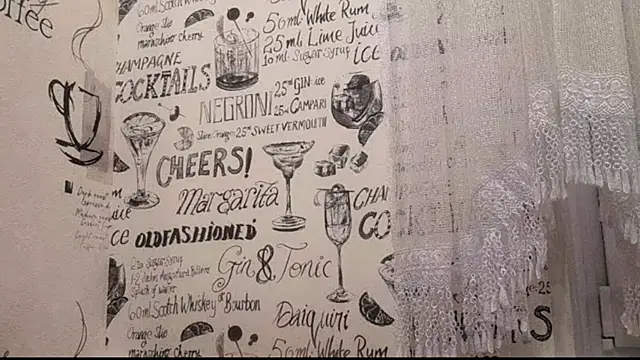 coffee
60ml Scotch Whis
Orange slice
maraschino cherry
50ml White Rum
25ml Lime Juice
10ml Sugar Syrup
ice
CHAMPAGNE
COCKTAILS
NEGRONI
25ml GIN ice
25ml CAMPARI
Slice Orange 25ml SWEET VERMOUTH
CHEERS!
Margarita
CHAM
CO
ice
ice
OLDFASHIONED
Gin & Tonic
2 Sugar Syrup
1-2 dashes Angostura Bitters
Splash of Water
60ml Scotch Whiskey or Bourbon
Orange slice
maraschino cherry
Daiquiri
50ml White Rum
S